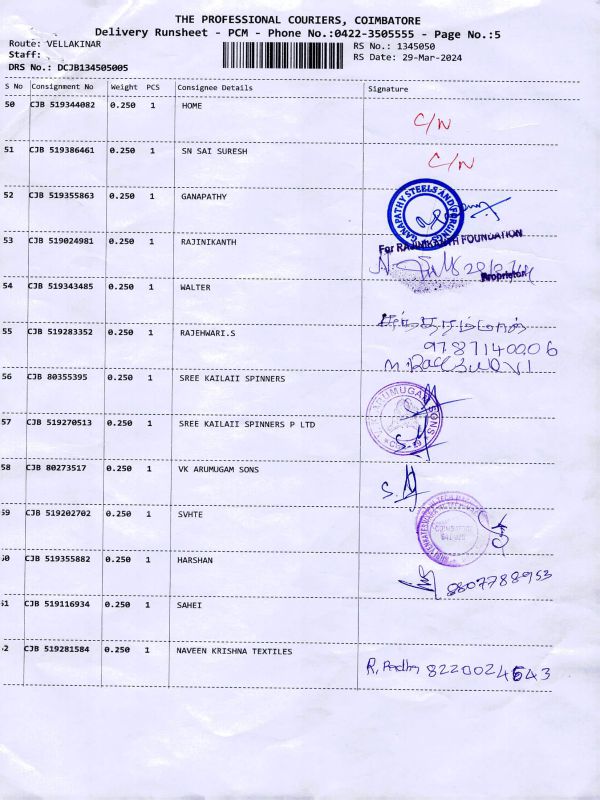 THE PROFESSIONAL COURIERS, COIMBATORE
Delivery Runsheet - PCM - Phone No.:0422-3505555 - Page No.:5
Route: VELLAKINAR RS No.: 1345050
Staff: RS Date: 29-Mar-2024
DRS No.: DCJB134505005
S No Consignment No Weight PCS Consignee Details Signature
50 CJB 519344082 0.250 1 HOME
C/N
51 CJB 519386461 0.250 1 SN SAI SURESH
C/N
52 CJB 519355863 0.250 1 GANAPATHY
GANAPATHY STEELS AND FORGINGS
53 CJB 519024981 0.250 1 RAJINIKANTH
For RAJINIKANTH FOUNDATION
Proprietor
54 CJB 519343485 0.250 1 WALTER
55 CJB 519283352 0.250 1 RAJEHWARI.S
9787140006
56 CJB 80355395 0.250 1 SREE KAILAII SPINNERS
ARUMUGAM SONS
57 CJB 519270513 0.250 1 SREE KAILAII SPINNERS P LTD
58 CJB 80273517 0.250 1 VK ARUMUGAM SONS
59 CJB 519202702 0.250 1 SVHTE
60 CJB 519355882 0.250 1 HARSHAN
8807788953
61 CJB 519116934 0.250 1 SAHEI
62 CJB 519281584 0.250 1 NAVEEN KRISHNA TEXTILES
R. Padhy 8220024643